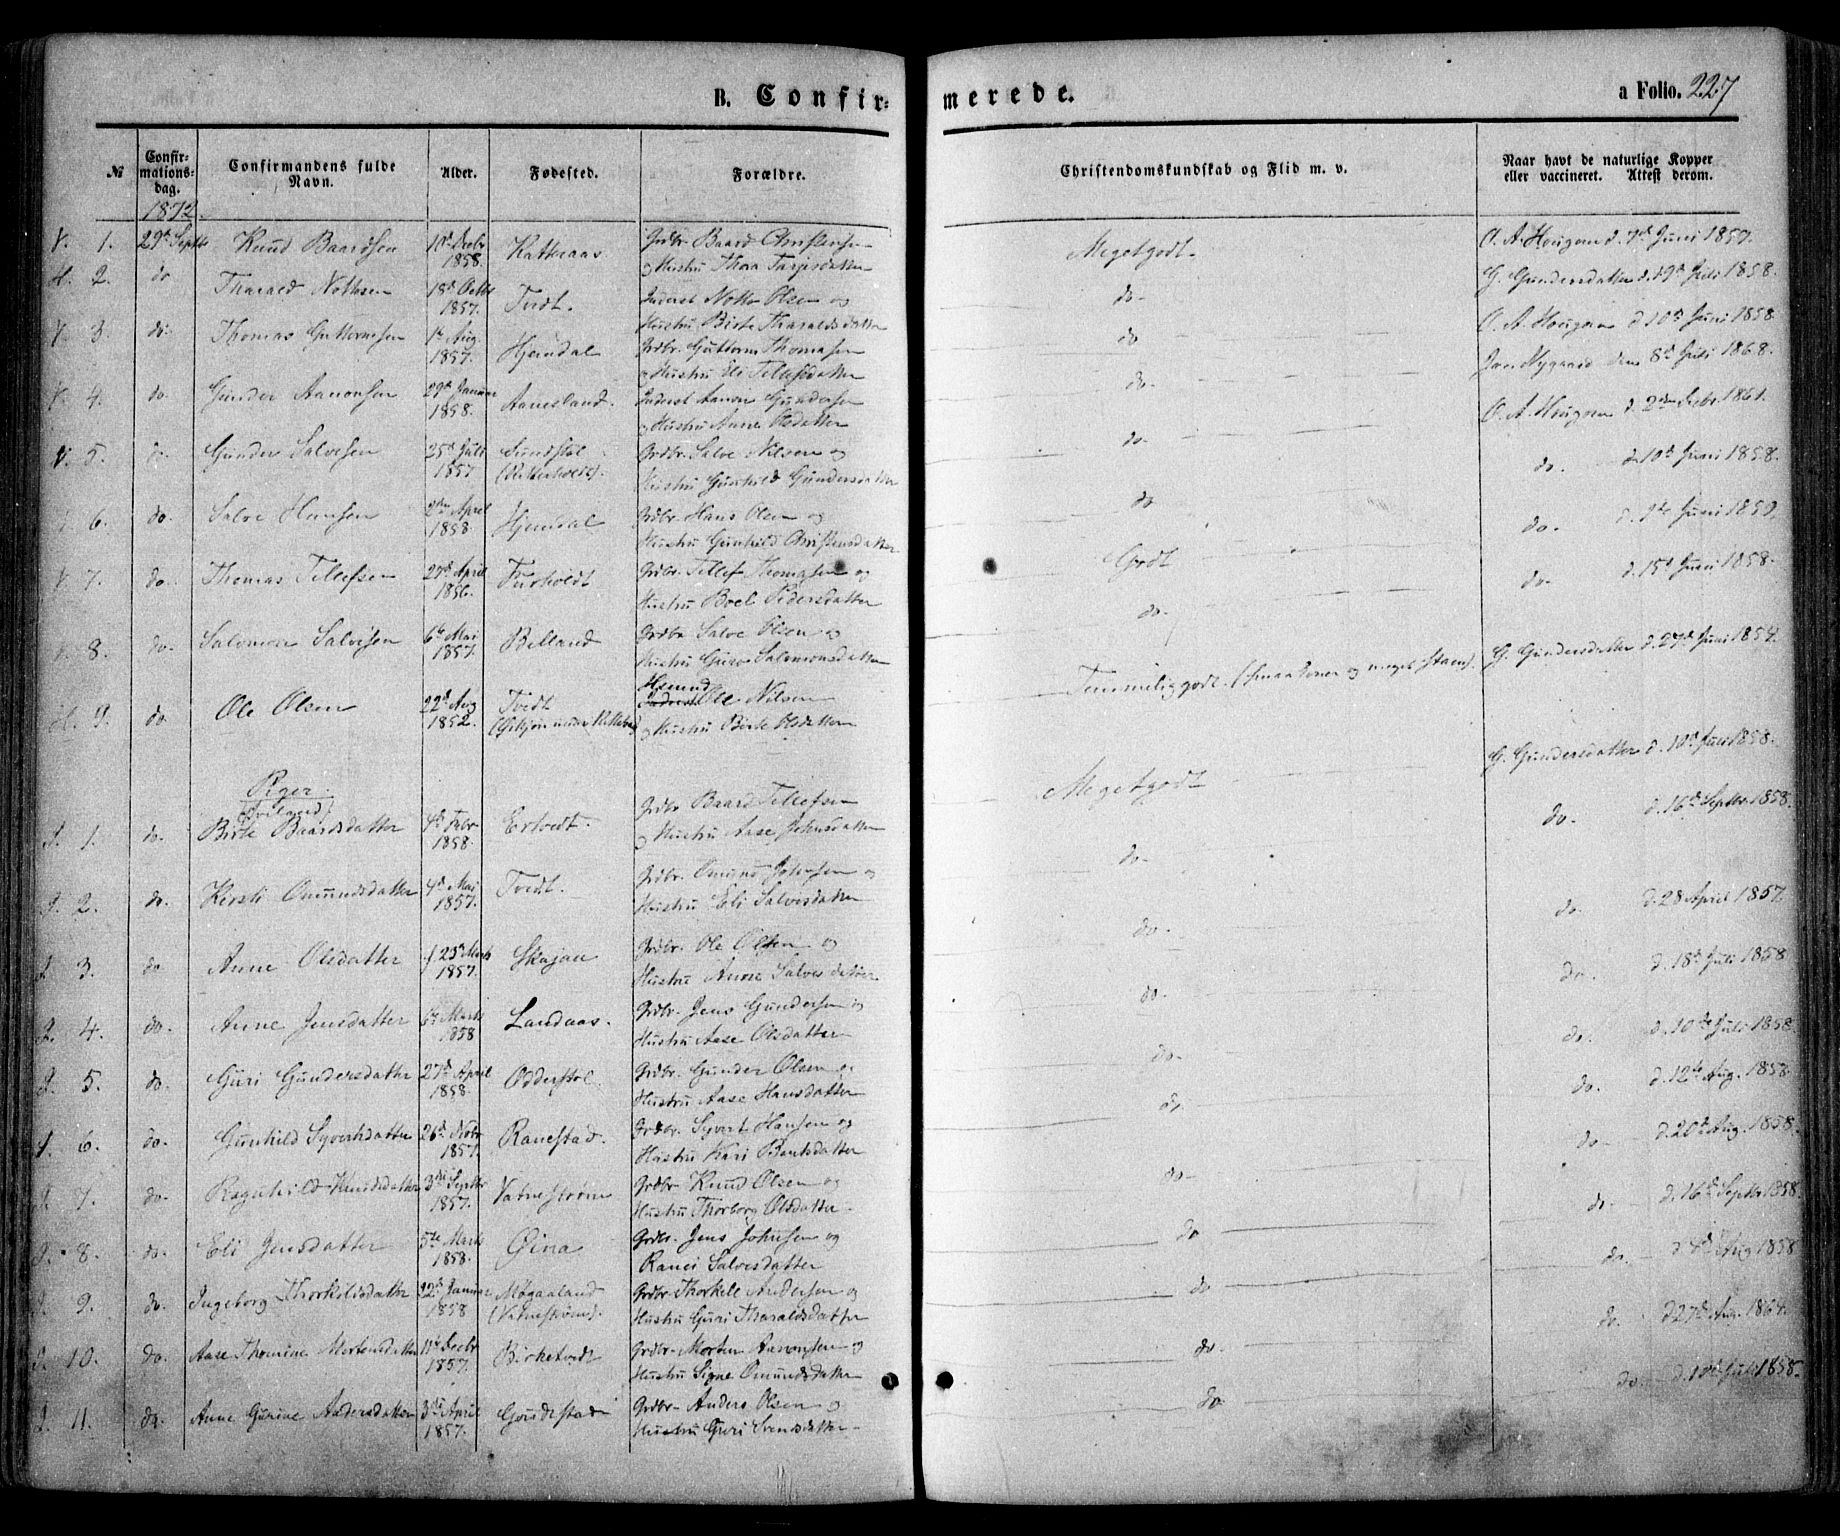 B. Confirmerede.
a Folio. 227
№ Confirmationsdag. Confirmandens fulde Navn. Alder. Fødested. Forældre. Christendomskundskab og Flid m. v. Naar havt de naturlige Kopper eller vaccineret. Attest derom.
1872.
1. 29de Septbr Knud Baardsen 10d Decbr 1858. Katteraas Grdbr. Baard Christensen og Hustru Thora Tarjesdatter Megetgodt. O. A. Hougen d. 7d Juni 1857.
2. do Tharald Nottosen 18d Octbr 1857. Tvedt. Inderst Notto Olsen og Hustru Birte Tharaldsdatter do- G. Gundersdatter d. 19d Juli 1858.
3. do. Thomas Guttormsen 1te Aug. 1857. Hjemdal Grdbr. Guttorm Thomasen og Hustru Eli Tellefsdatter do O. A. Hougen d 10d Juni 1858.
4. do. Gunder Aanonsen 29d Januar 1858. Aanesland. Inderst Aanon Gundersen og Hustru Anne Olsdatter do. Nygaard den 8d Juli 1868.
5. do Gunder Salvesen 25d Juli 1857 Sundstøl Grdbr. Salve Nilsen og Hustru Gunhild Gundersdatter do- O. A. Hougen d. 2den Decbr. 1861.
6. do. Salve Hansen 2den April 1858. Hjemdal Grdbr. Hans Olsen og Hustru Gunhild Christensdatter do do- d. 10d Juni 1858.
7. do. Thomas Tellefsen 29d April 1856. Furholdt Grdbr. Tellef Thomasen og Hustru Boel Pedersdatter Godt do- Juni 1859.
8. do. Salomon Salvesen 6te Mai 1857. Belland Grdbr Salve Olsen og Hustru Guro Salomonsdatter do. do- d. 15d Juni 1858.
9. do. Ole Olsen 22d Aug 1852. Tvedt Hsmnd Ole Nilsen og Hustru Birte Olsdatter Temmelig godt. G. Gundersdatter d. 27d Juni 1854.
Piger.
1. do. Birte Baardsdatter 4d Febr 1858. Ertvedt. Grdbr Baard Tellefsen og Hustru Aase Johnsdatter Megetgodt G. Gundersdatter d. 10d Juli 1858.
2. do. Kirsti Omundsdatter 4d Mai 1857. Tvedt. Grdbr. Omund Johnsen og Hustru Eli Salvesdatter do- do. d. 16d Septbr. 1858.
3. do Anne Olsdatter 25d Marts 1857. Skajaa Grdbr. Ole Olsen og Hustru Anne Salvesdatter do. do. d. 28 April 1857
4. do. Anne Jensdatter 6te Marts 1858 Landaas. Grdbr. Jens Gundersen og Hustru Aase Olsdatter do. do. d. 18d Juli 1858
5. do. Guri Gundersdatter 27d April 1858. Odderstøl. Grdbr. Gunder Olsen og Hustru Aase Hansdatter do. do. d. 10de Juli 1858.
6. do. Gunhild Syvertsdatter 26d Novbr 1857. Ranestad. Grdbr. Syvert Hansen og Hustru Kari Bentsdatter do. do. d. 12te Aug. 1858.
7. do. Ragnhild Knudsdatter 3die Septbr 1857. Vatnestrøm Grdbr. Knud Olsen og Hustru Thorborg Olsdatter. do- do- d. 20d Aug. 1858.
8. do. Eli Jensdatter 5te Marts 1858. Øina Grdbr. Jens Johnsen og Ranei Salvesdatter do do. d. 16d Septbr 1858.
9. do. Ingeborg Thorkildsdatter 22d Januar 1858 Møgaaland (Vatnestrøm). Grdbr Thorkild Andersen og Hustru Guri Tharaldsdatter do do. d. 4d Aug 1858
10. do. Aase Thomine Mortensdatter 11te Decbr 1857. Birketvedt Grdbr- Morten Aanonsen og Hustru Signe Omundsdatter do. do. d 27d Aug. 1864.
11. do. Anne Gurine Andersdatter 3die April 1857. Goudestad Grdbr- Anders Olsen og Hustru Guri Svendsdatter- do do. d. 10d Juli 1858.